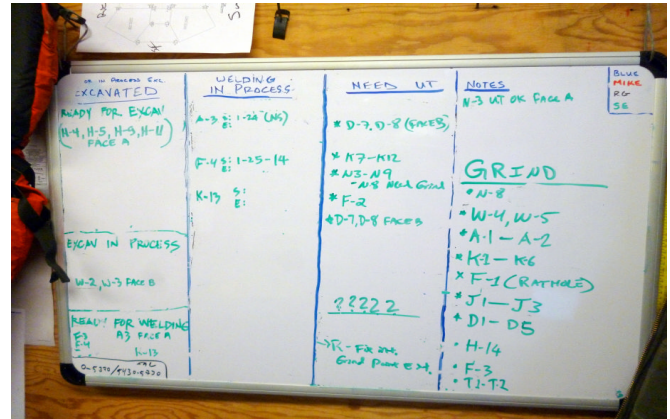 OR IN PROCESS EXC
EXCAVATED
READY FOR EXCAV
(H-4, H-5, H-9, H-11)
FACE A
EXCAV IN PROCESS
W-2, W-3 FACE B
READY FOR WELDING
F-3 A3 FACE A
F-4
K-13
WELDING
IN PROCESS
A-3 S: 1-24 (NS)
E:
F-4 S: 1-25-14
E:
K-13 S:
E:
NEED UT
* D-7, D-8 (FACE B)
* K7-K12
* N3-N9
-N8 Need Grind
* F-2
* D-7, D-8 FACE B
?????
NOTES
N-3 UT OK FACE A
GRIND
* N-8
* W-4, W-5
* A-1 - A-2
* K-1 - K-6
* F-1 (RATHOLE)
* J1 - J3
* D1 - D5
• H-14
• F-3
• T1-T2
BLUE
MIKE
RG
SE